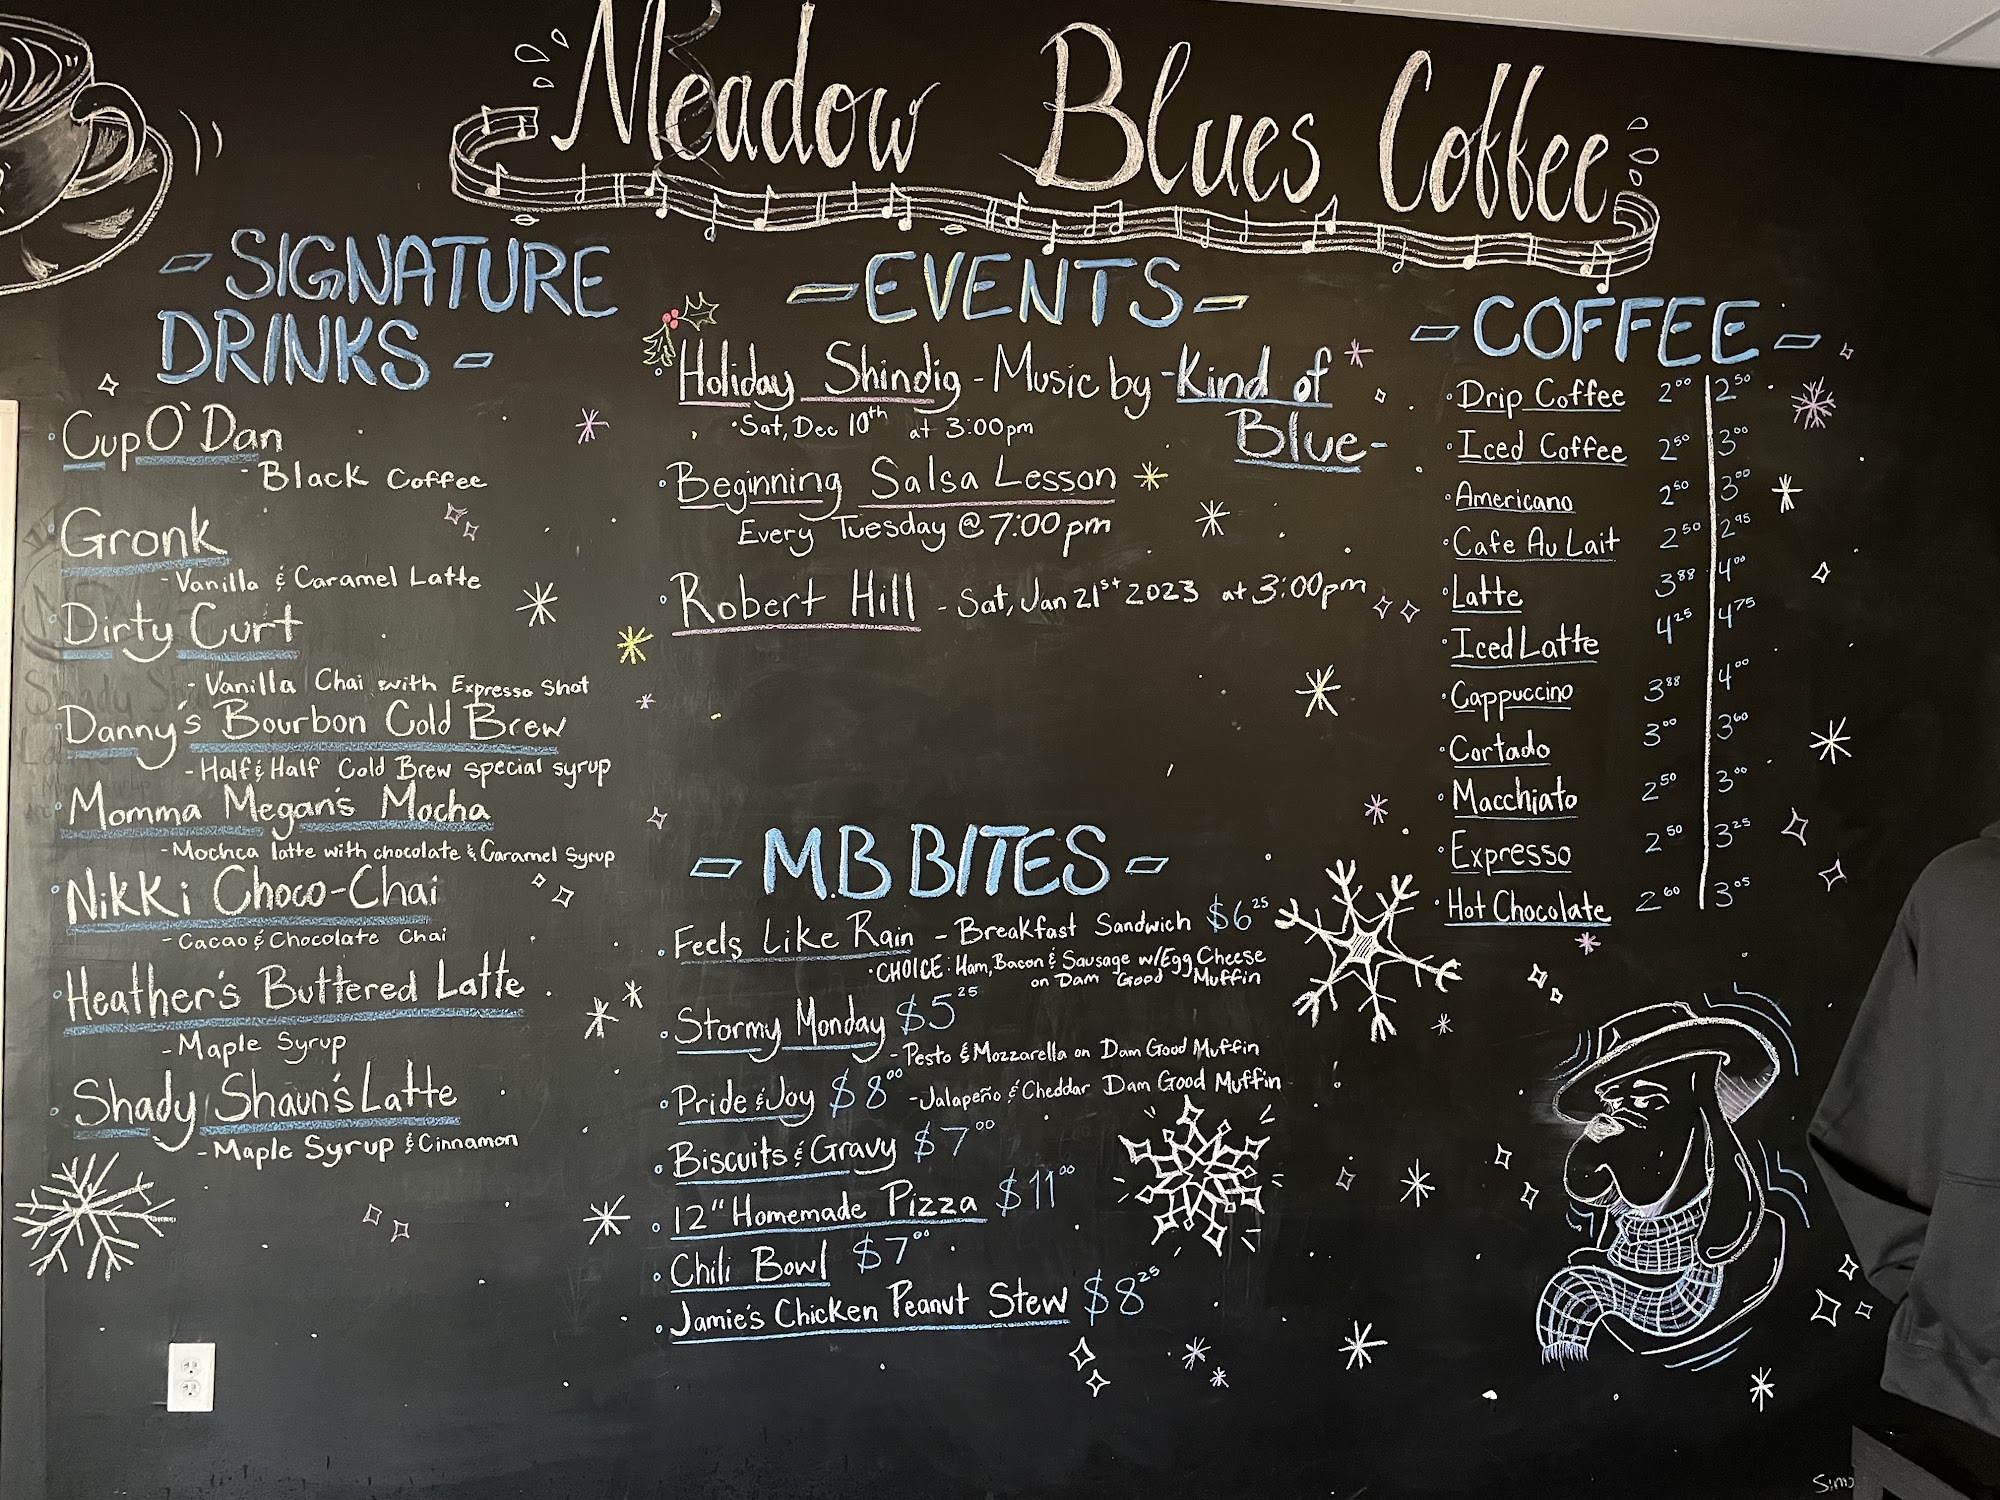 Meadow Blues Coffee
- SIGNATURE
DRINKS -
Cup O'Dan
- Black Coffee
Gronk
- Vanilla & Caramel Latte
Dirty Curt
- Vanilla Chai with Expresso Shot
Danny's Bourbon Cold Brew
- Half & Half Cold Brew special syrup
Momma Megan's Mocha
- Mochca latte with chocolate & Caramel Syrup
Nikki Choco-Chai
- Cacao & Chocolate Chai
Heather's Buttered Latte
- Maple Syrup
Shady Shaun's Latte
- Maple Syrup & Cinnamon
- EVENTS -
Holiday Shindig - Music by - Kind of
Blue -
• Sat, Dec 10th at 3:00pm
Beginning Salsa Lesson
Every Tuesday @ 7:00pm
Robert Hill - Sat, Jan 21st 2023 at 3:00pm
- M.B BITES -
Feels Like Rain - Breakfast Sandwich $6 25
• CHOICE: Ham, Bacon & Sausage w/Egg Cheese
on Dam Good Muffin
Stormy Monday $5 25
- Pesto & Mozzarella on Dam Good Muffin
Pride & Joy $8 00 - Jalapeño & Cheddar Dam Good Muffin
Biscuits & Gravy $7 00
12" Homemade Pizza $11 00
Chili Bowl $7 00
Jamie's Chicken Peanut Stew $8 25
- COFFEE -
Drip Coffee 2 00 2 50
Iced Coffee 2 50 3 00
Americano 2 50 3 00
Cafe Au Lait 2 50 2 95
Latte 3 88 4 00
Iced Latte 4 25 4 75
Cappuccino 3 88 4 00
Cortado 3 00 3 60
Macchiato 2 50 3 00
Expresso 2 50 3 25
Hot Chocolate 2 60 3 05